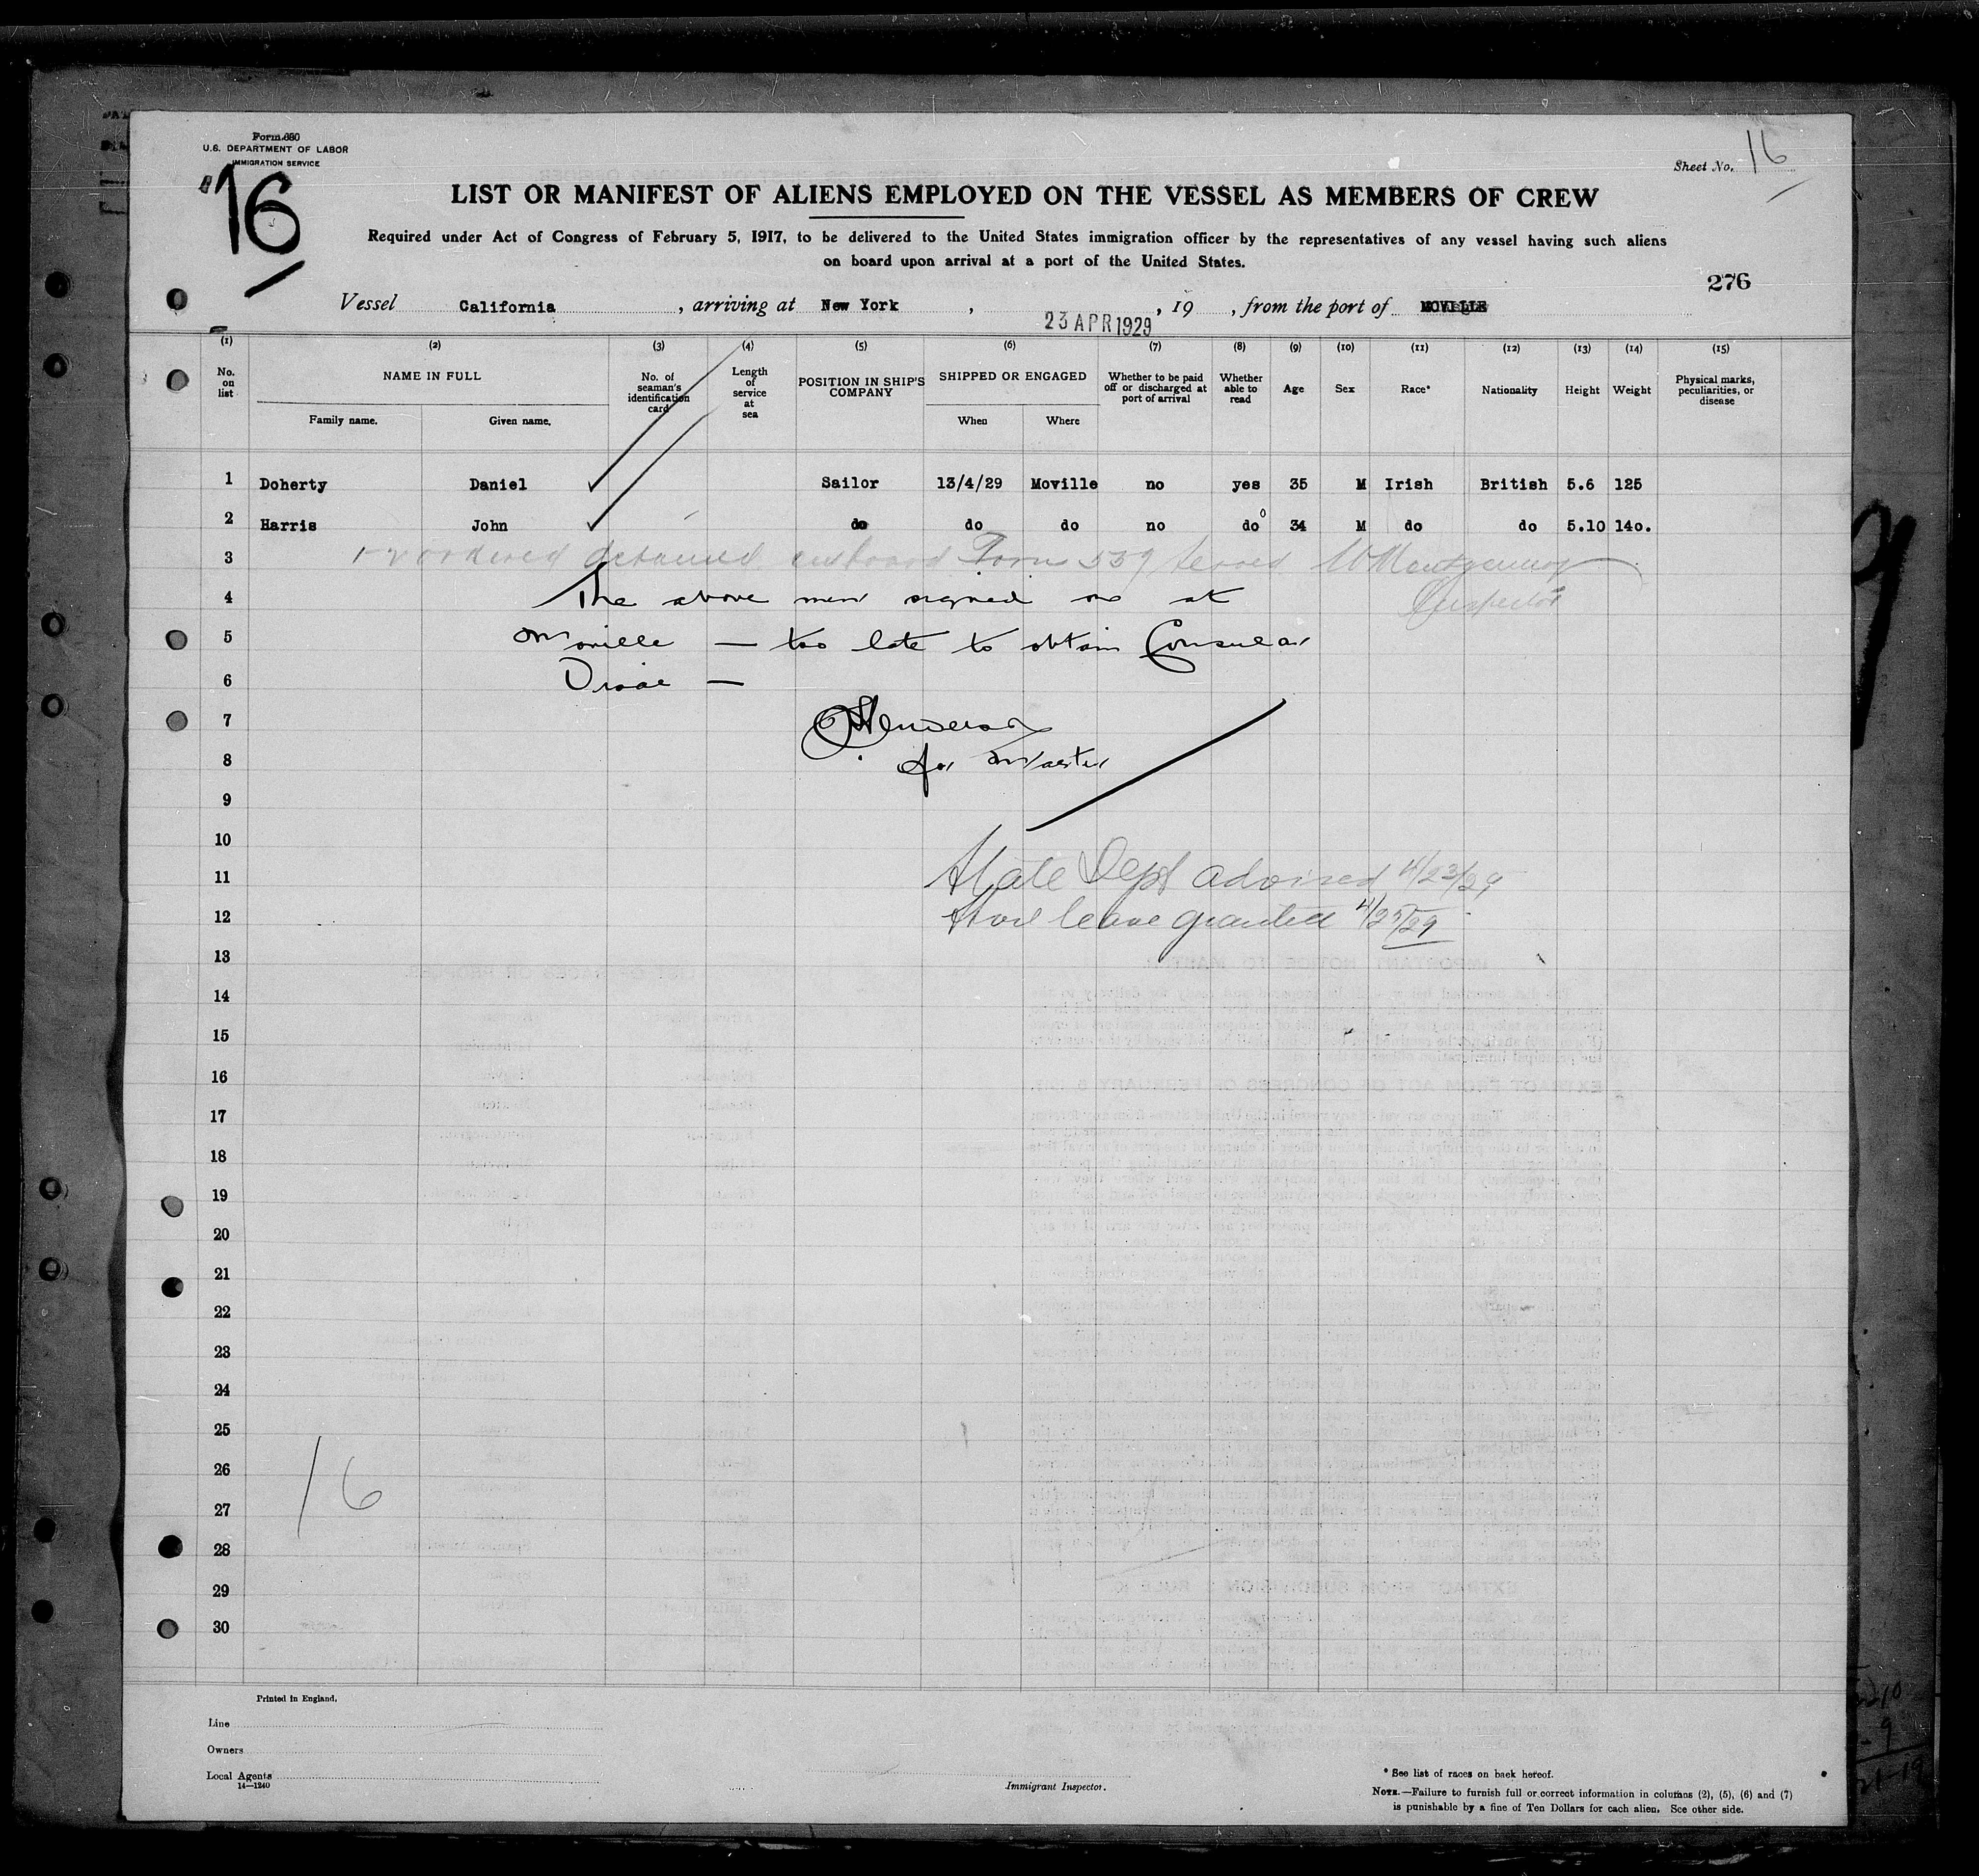 Form 680
U.S. DEPARTMENT OF LABOR
IMMIGRATION SERVICE
16
Sheet No. 16
LIST OR MANIFEST OF ALIENS EMPLOYED ON THE VESSEL AS MEMBERS OF CREW
Required under Act of Congress of February 5, 1917, to be delivered to the United States immigration officer by the representatives of any vessel having such aliens
on board upon arrival at a port of the United States.
276
Vessel California, arriving at New York, 23 APR 1929, 19 , from the port of MOVILLE
(1) (2) (3) (4) (5) (6) (7) (8) (9) (10) (11) (12) (13) (14) (15)
No. on list NAME IN FULL Family name. Given name. No. of seaman's identification card Length of service at sea POSITION IN SHIP'S COMPANY SHIPPED OR ENGAGED When Where Whether to be paid off or discharged at port of arrival Whether able to read Age Sex Race* Nationality Height Weight Physical marks, peculiarities, or disease
1 Doherty Daniel Sailor 13/4/29 Moville no yes 35 M Irish British 5.6 125
2 Harris John do do do no do 34 M do do 5.10 14o.
3 1-2 ordered detained on board Form 539 served W Montgomery
Inspector
4 The above men signed on at
5 Moville — too late to obtain Consular
6 Visae —
7 Henderson
8 for Master
9
10
11 State Dept advised 4/23/29
12 Shore leave granted 4/25/29
13
14
15
16
17
18
19
20
21
22
23
24
25
26
16
27
28
29
30
Printed in England.
Line
Owners
Local Agents
14—1240
Immigrant Inspector.
* See list of races on back hereof.
NOTE.—Failure to furnish full or correct information in columns (2), (5), (6) and (7)
is punishable by a fine of Ten Dollars for each alien. See other side.